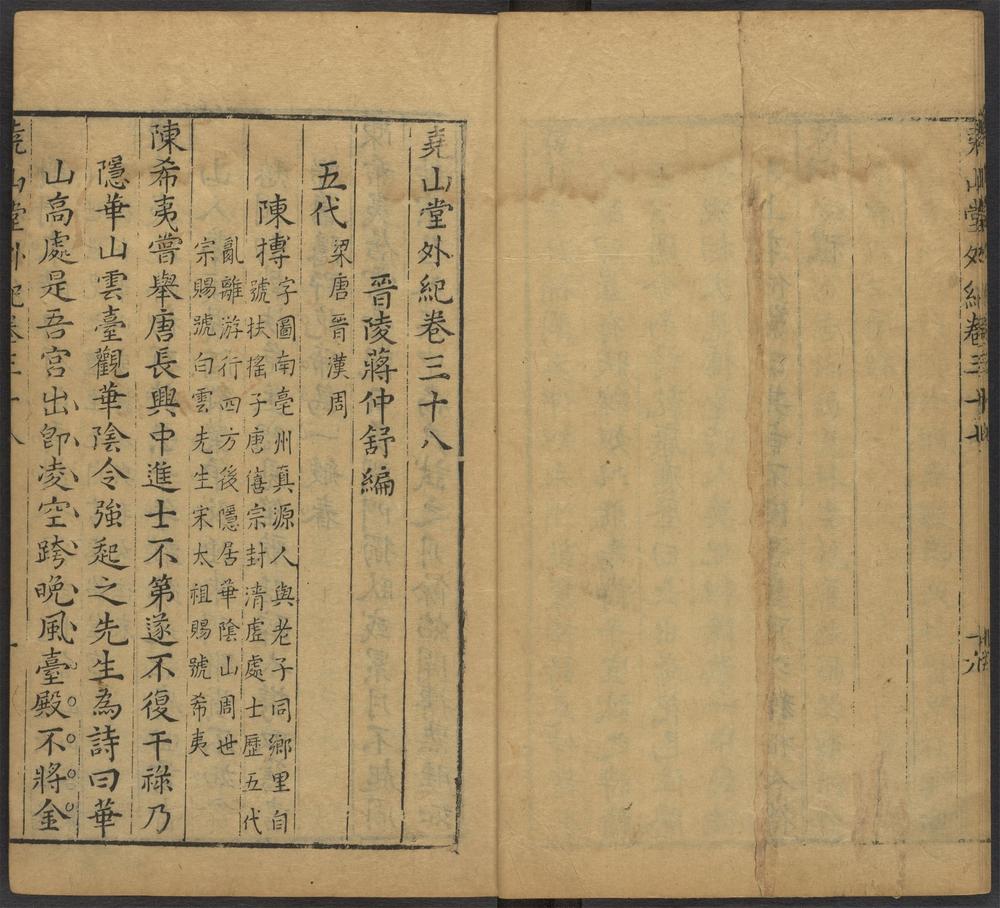 堯山堂外紀卷三十
堯山堂外紀卷三十八
晉陵蔣仲舒編
五代梁唐晉漢周
陳摶字圖南亳州真源人與老子同鄉里自
號扶搖子唐僖宗封清虛處士歷五代
亂離游行四方後隱居華陰山周世
宗賜號白雲先生宋太祖賜號希夷
陳希夷嘗舉唐長興中進士不第遂不復干祿乃
隱華山雲臺觀華陰令強起之先生為詩曰華
山高處是吾宮出即凌空跨晚風臺殿不將金
堯山堂外紀卷三十八 一